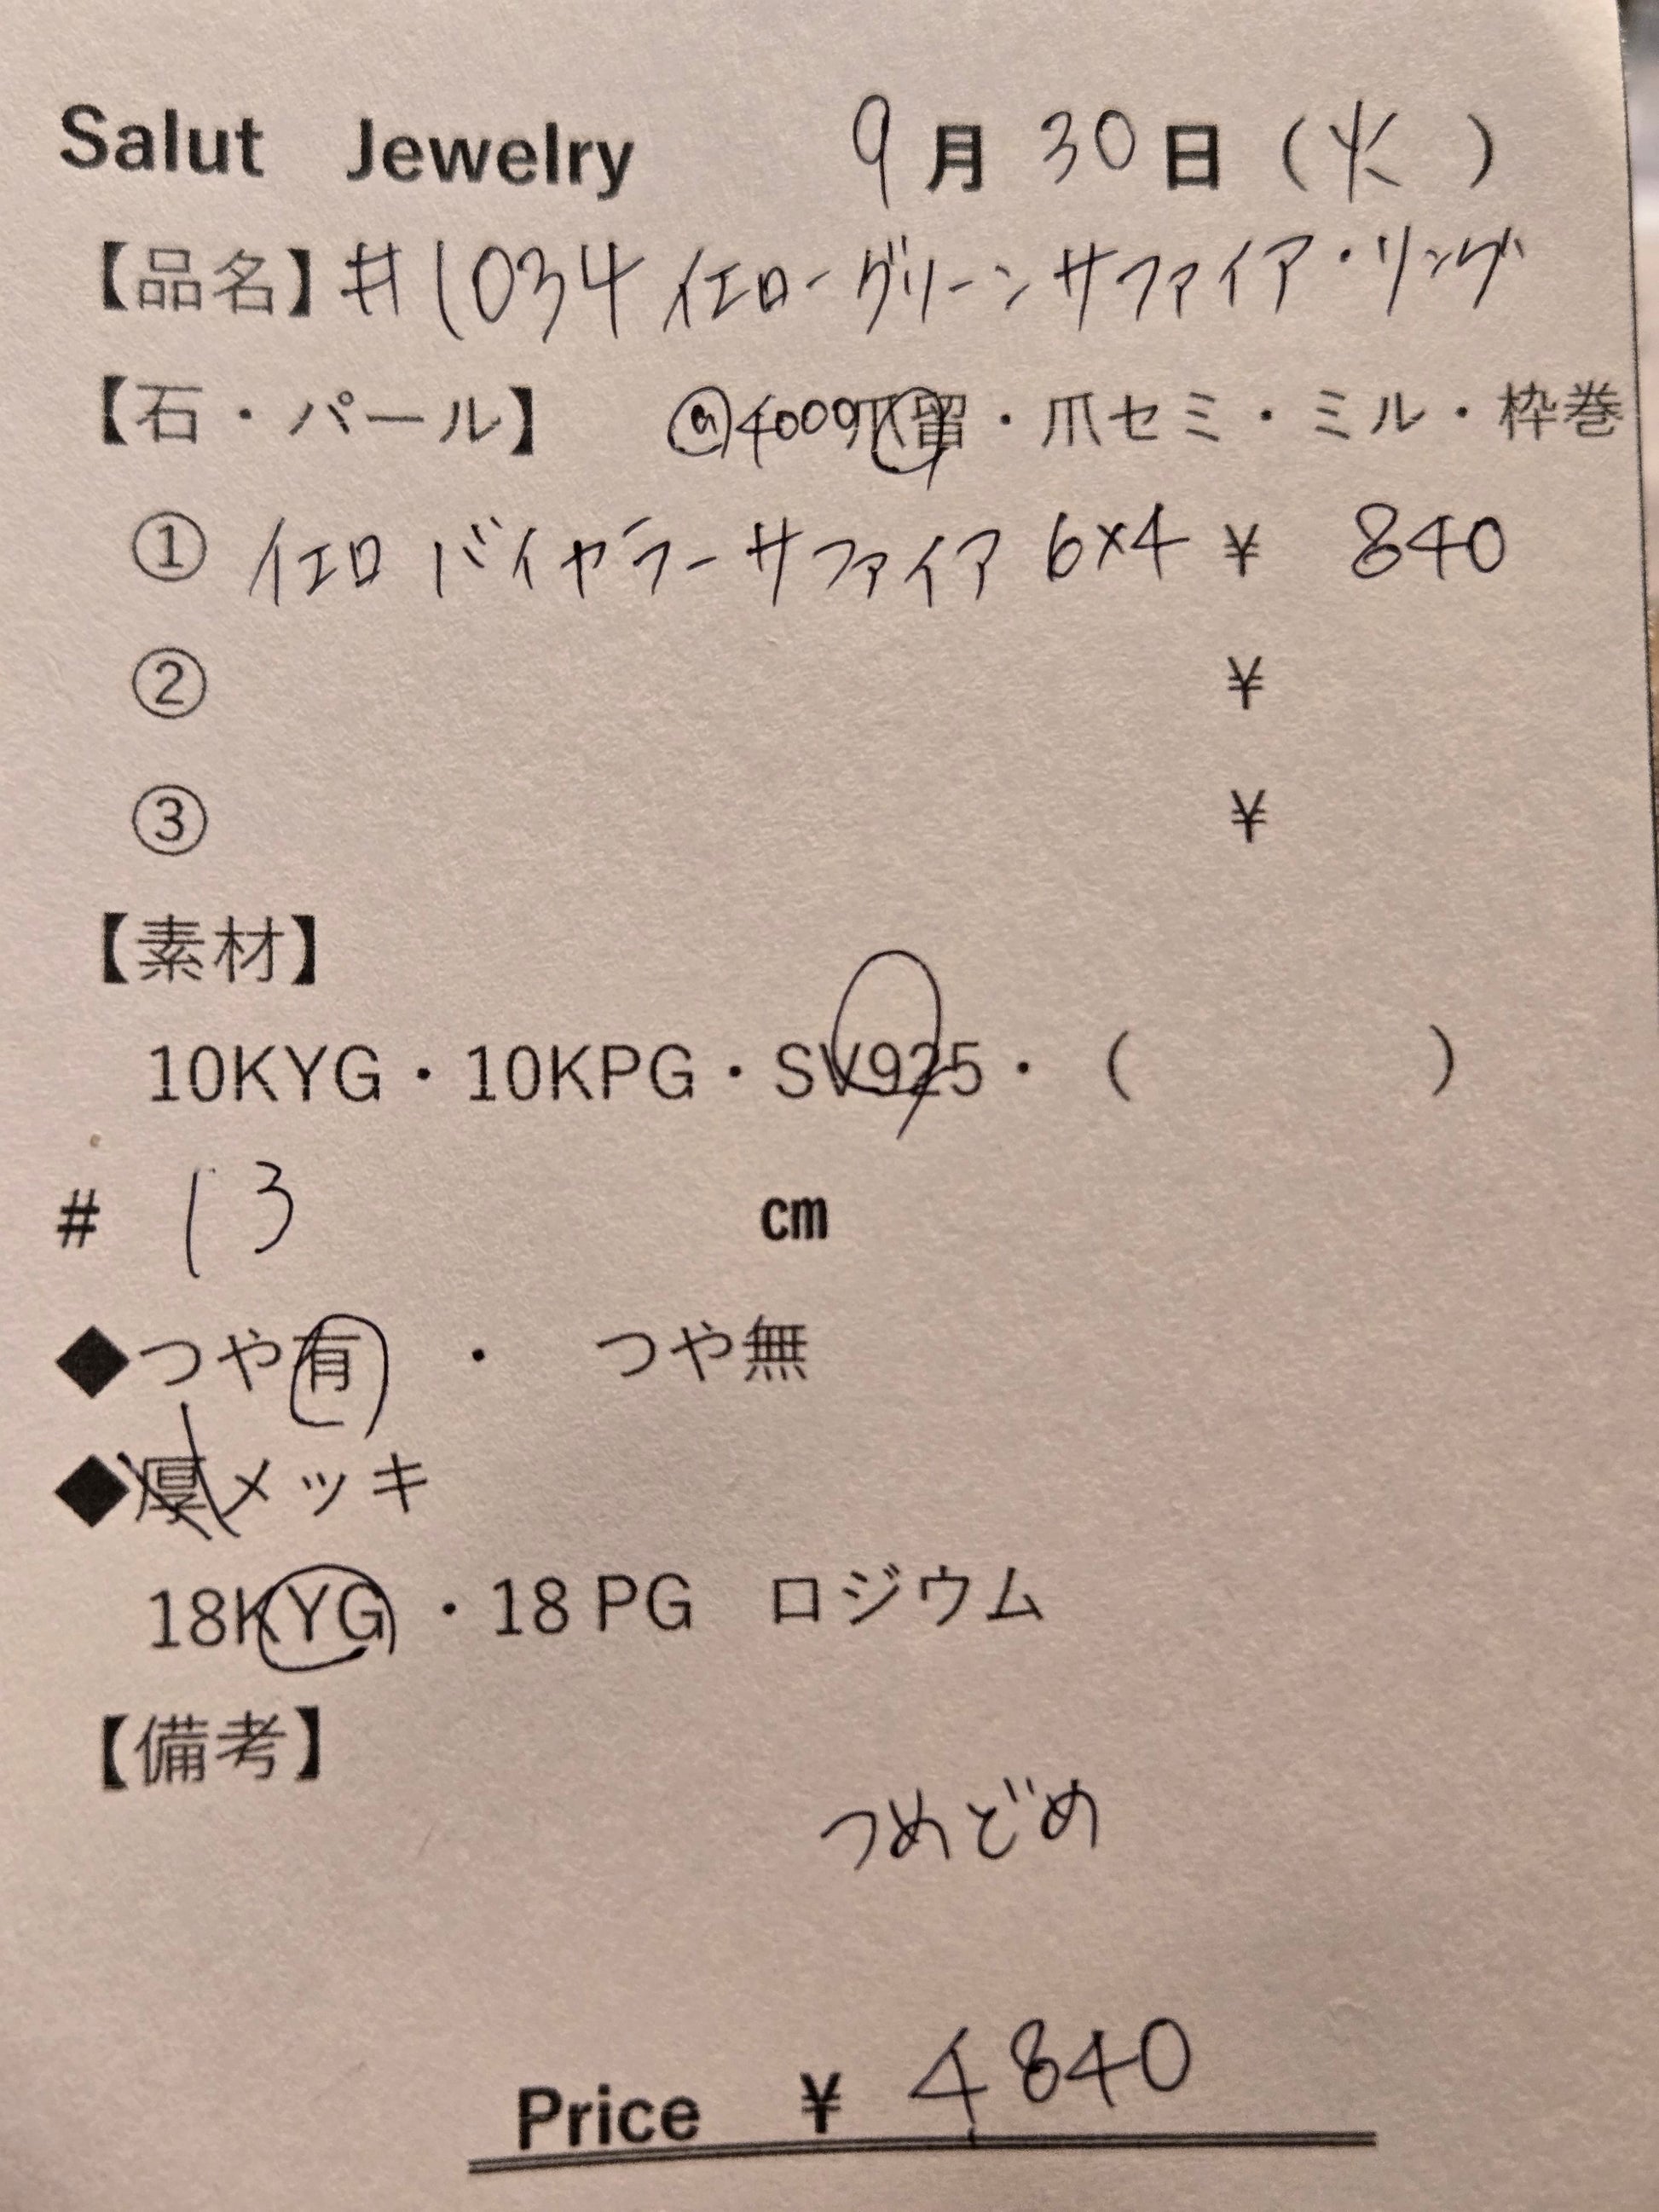 Salut Jewelry 9月30日(火)
【品名】#1034イエローグリーンサファイア・リング
【石・パール】 @4000爪留・爪セミ・ミル・枠巻
① イエロバイヤラーサファイア 6×4 ¥ 840
② ¥
③ ¥
【素材】
10KYG・10KPG・SV925・( )
# 13 cm
◆つや有 ・ つや無
◆厚メッキ
18KYG ・18 PG ロジウム
【備考】
つめどめ
Price ¥ 4840